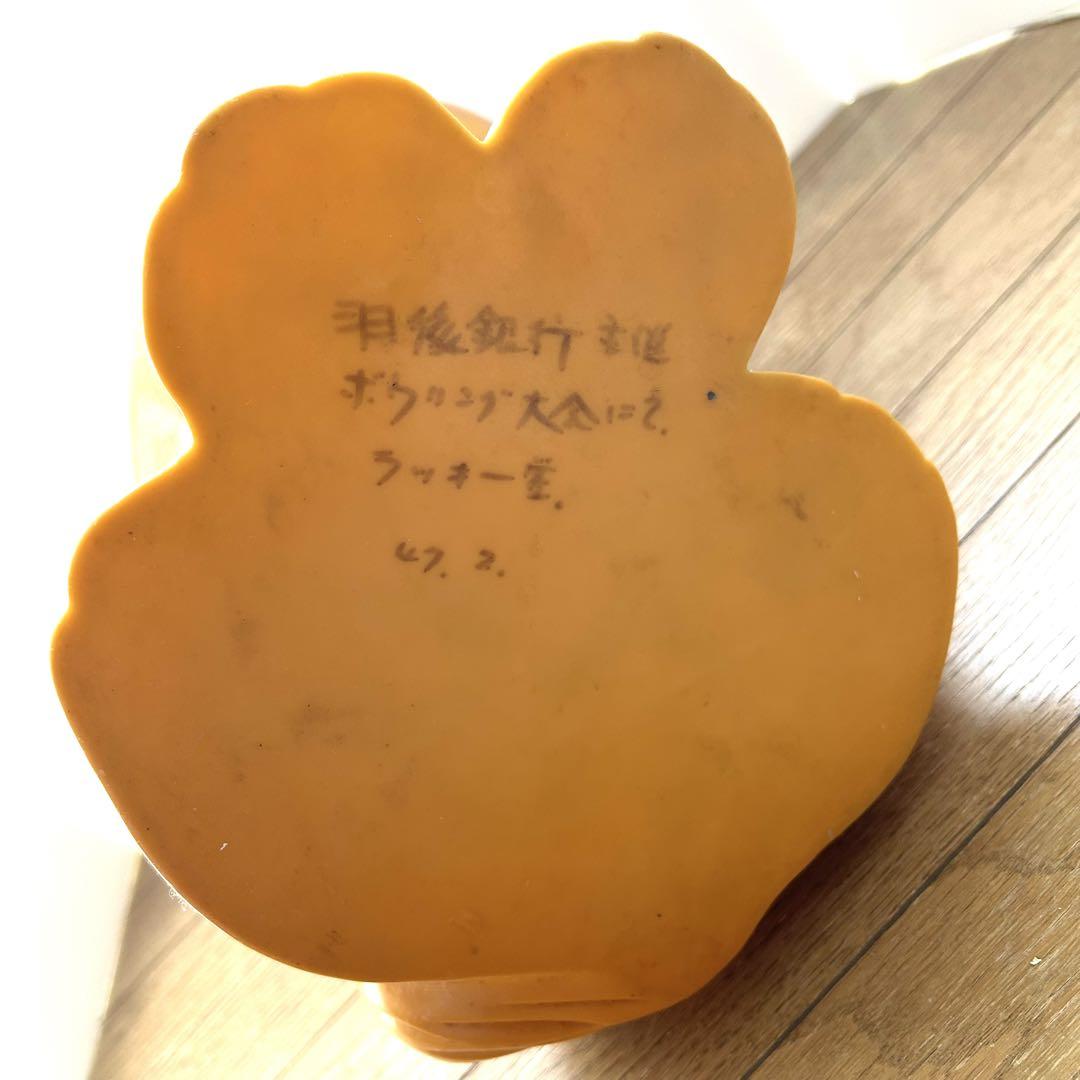 肥後銀行主催
ボウリング大会にて.
ラッキー賞.
47. 2.